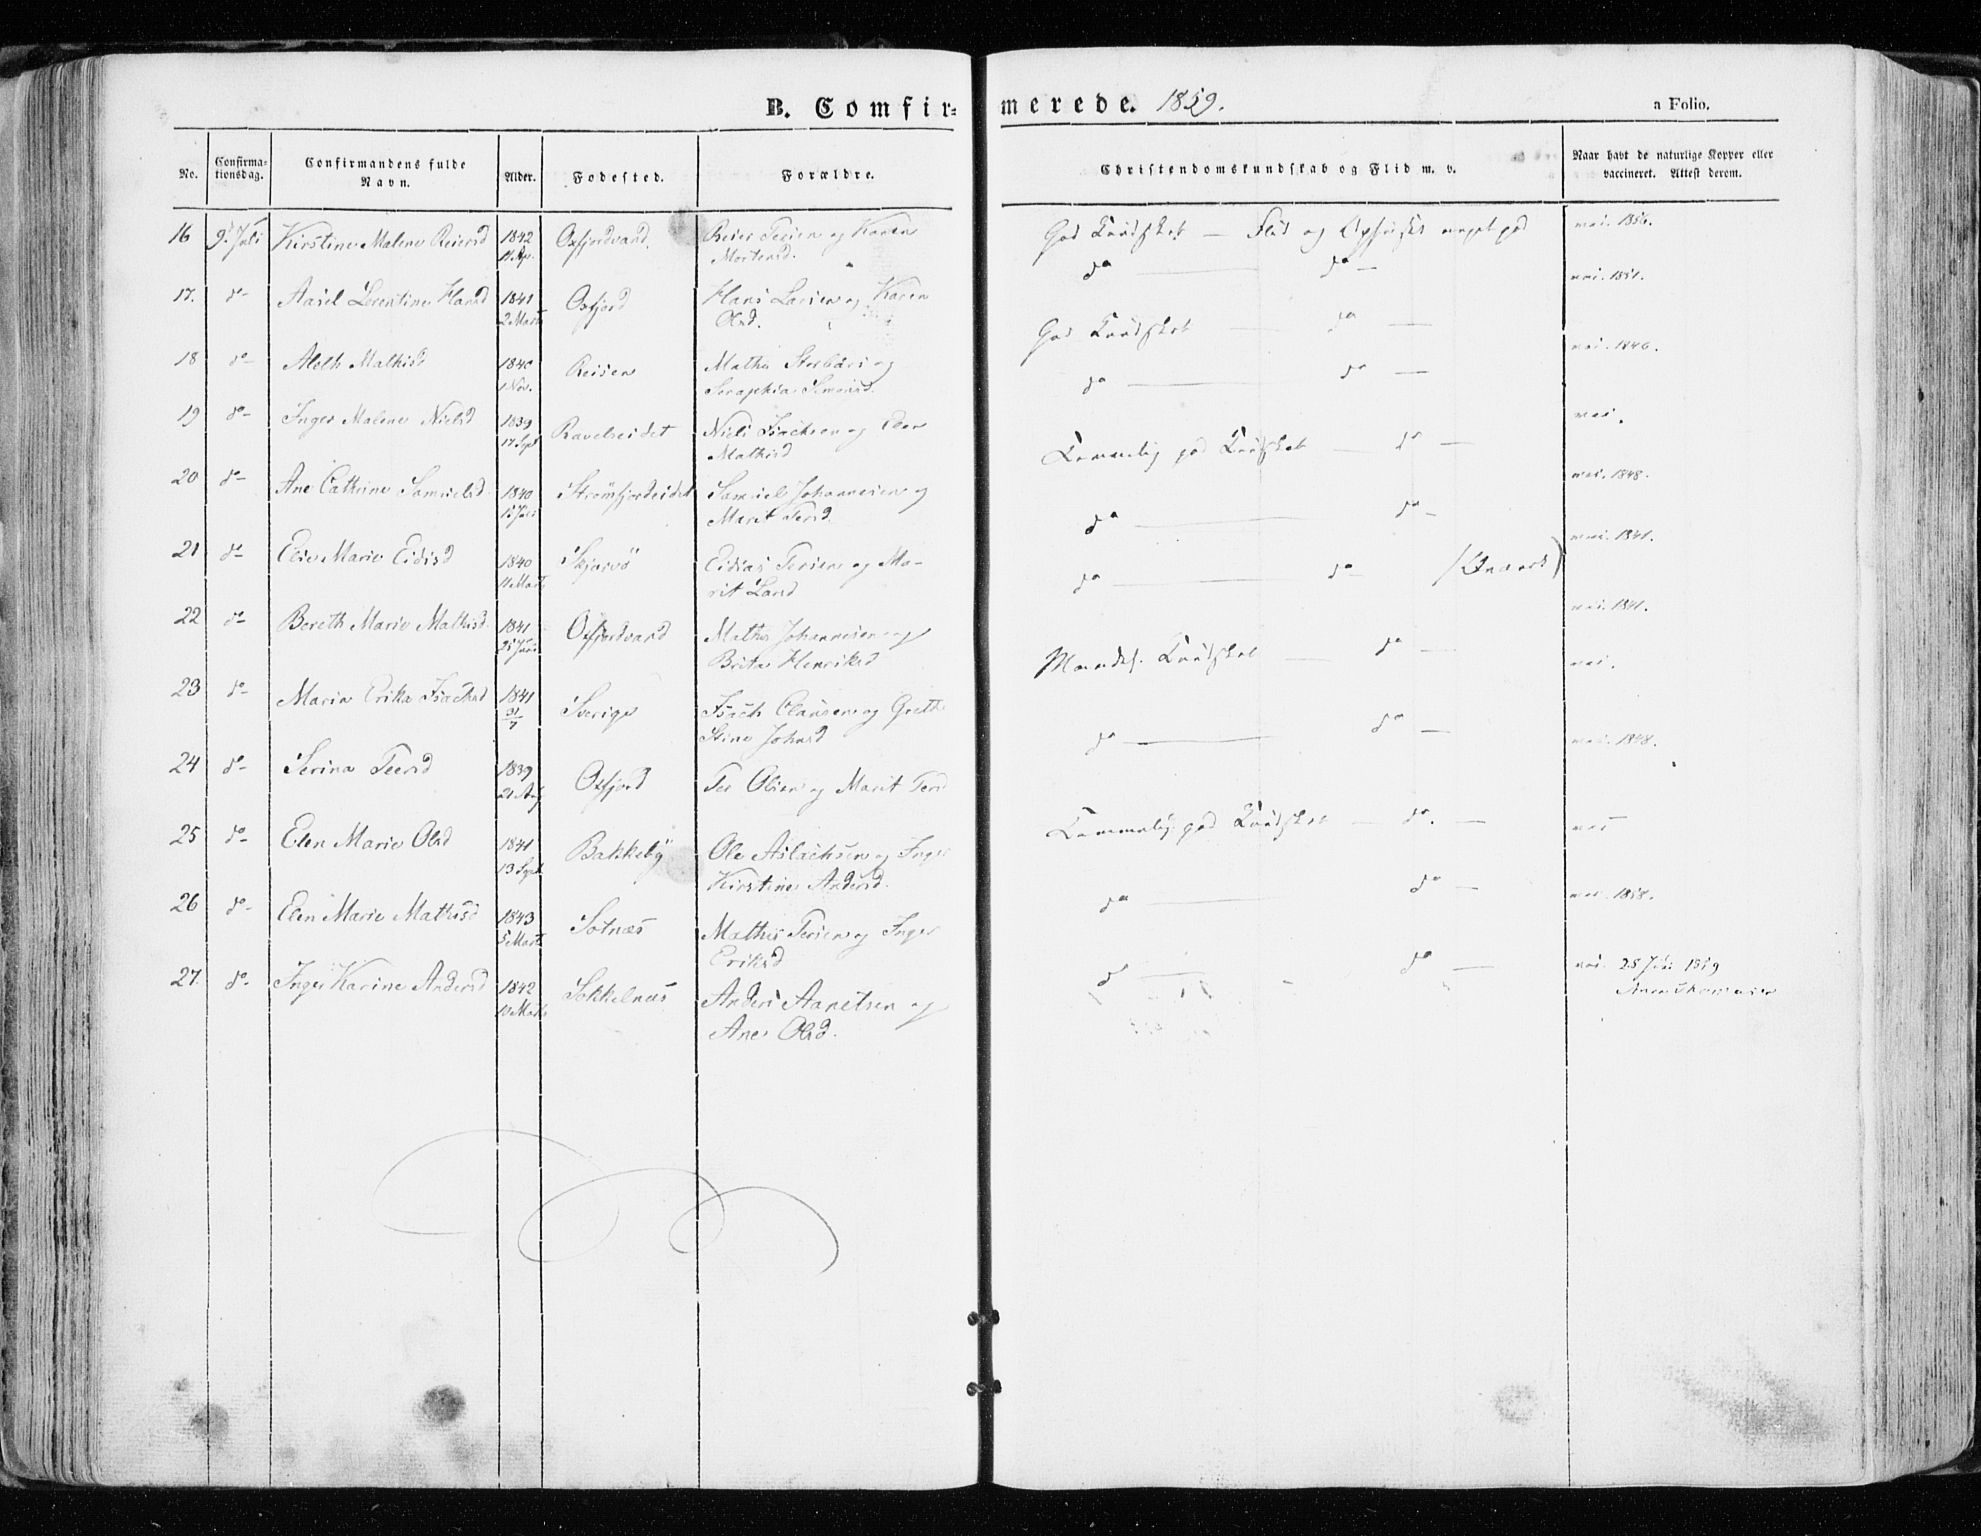 B. Comfirmerede. 1859.
a Folio.
No. Confirmationsdag. Confirmandens fulde Navn. Alder. Fodested. Forældre. Christendomskundskab og Flid m. v. Naar havt de naturlige Kopper eller vaccineret. Attest derom.
16 9. Juli Kirstine Malene Reiersd 1842 Oxfjordvand. Reier Tersen og Karen
11 Ap. Mortensd. vac. 1856.
God Kundskab — Flid og Opførsel meget god
17. do Aasel Lerentine Hansd 1841 Oxfjord Hans Larsen og Karen
2 Marts Olsd. do — do — vac. 1851.
18 do Aleth Mathisd 1840 Reisen Mathis
1 Nov. Seraphia Simonsd. God Kundskab — do — vac. 1846.
19 do Inger Malene Nielsd 1839 Ravelseidet Niels Isachsen og Elen
17 Sept Mathisd do — do — vac.
20 do Ane Cathrine Samuelsd. 1840 Strømfjordeidet Samuel Johannesen og
Marit Tersd. Temmelig god Kundskab — do — vac. 1848.
21 do Elen Marie Eidisd 1840 Skjervø Eidias Tersen og Ma-
11 Marts rit Larsd do — do — vac. 1841.
22 do Bereth Marie Mathisd. 1841 Oxfjordvand Mathis Johannesen og
Brita Henriksd do — do vac. 1841.
23 do Maria Erika Isachsd 1841 Sverige Isach Clausen og Grethe
31/7 Stine Johnsd Maadel. Kundskab — do — vac.
24 do Serina Teersd 1839 Oxfjord Ter Olsen og Marit Tersd
21 Aug do — do — vac. 1848.
25 do Elen Marie Olsd 1841 Bakkeby Ole Aslachsen og Inger
13 Sept Kirstine Andersd. Temmelig god Kundskab — do. — vac
26 do Elen Marie Mathisd 1843 Sotnæs Mathis Tersen og Inger
5 Marts Eriksd do — do — vac. 1858.
27. do Inger Karine Andersd 1842 Sokkelnæs Anders Aanetsen og
10 Marts Ane Olsd. do — do — vac. 25 Juni 1859